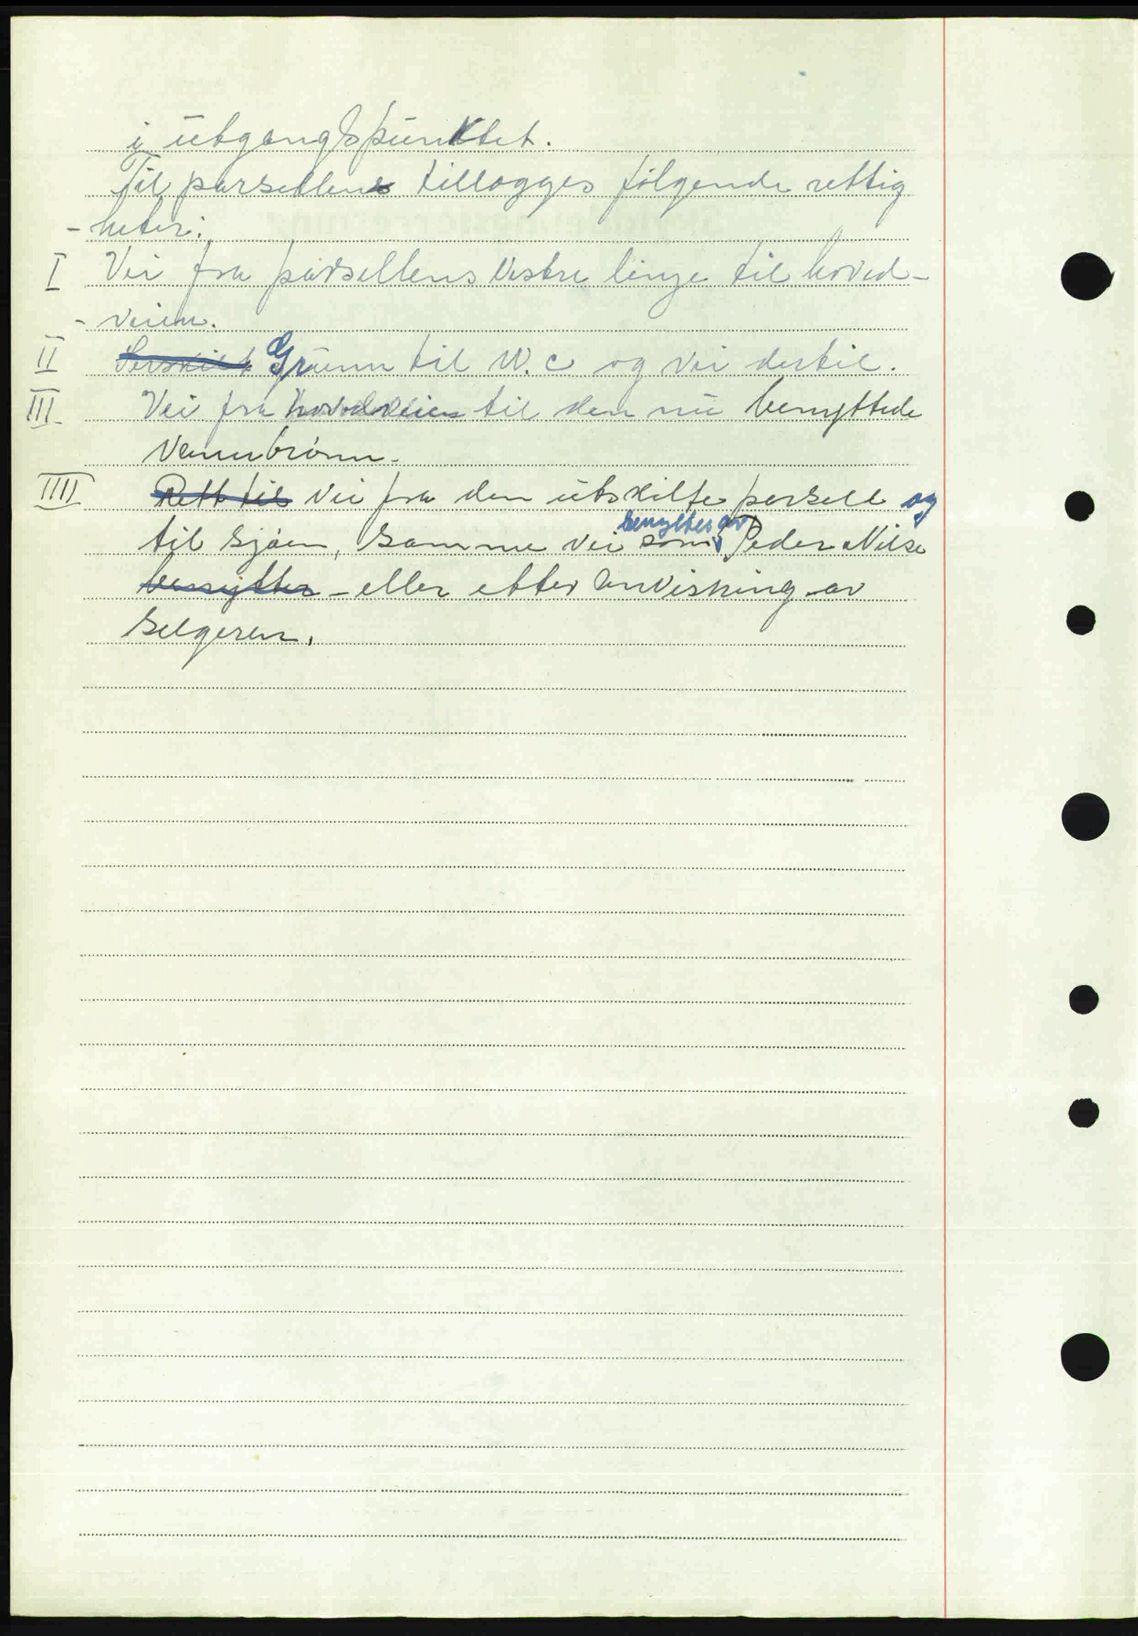 i utgangspunktet.
Til parsellen tillegges følgende rettig
- heter:
I Vei fra parsellens vestre linje til hoved-
- veien.
II Grunn til W.c og vei dertil.
III Vei fra hovedveien til den nu benyttede
vannbrønn.
IIII Rett til vei fra den utskilte parsell og
til sjøen, samme vei som benyttes av Peder Nilse
benyttes - eller etter anvisning av
selgeren.